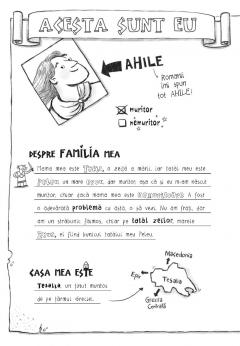 ACESTA SUNT EU
AHILE
Romanii
îmi spun
tot AHILE!
muritor
nemuritor
DESPRE FAMILIA MEA
Mama mea este Tetis, o zeiță a mării, iar tatăl meu este
Peleu, un mare erou, dar muritor, așa că și eu m-am născut
muritor, chiar dacă mama mea este nemuritoare. A fost
o adevărată problemă cu asta, o să vezi. Nu am frați, dar
am un străbunic faimos, chiar pe tatăl zeilor, marele
Zeus, el fiind bunicul tatălui meu Peleu.
CASA MEA ESTE
Tesalia, un ținut muntos
de pe țărmul grecesc.
Macedonia
Epir
Tesalia
Grecia
Centrală